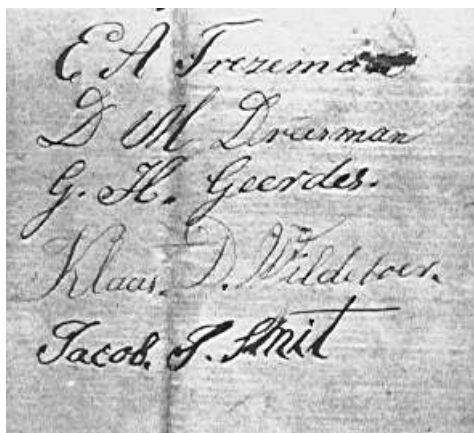 E A Trezeman
D M Driesman
G. H. Geerdes.
Klaas. D. Wildeboer.
Jacob. J. Smit